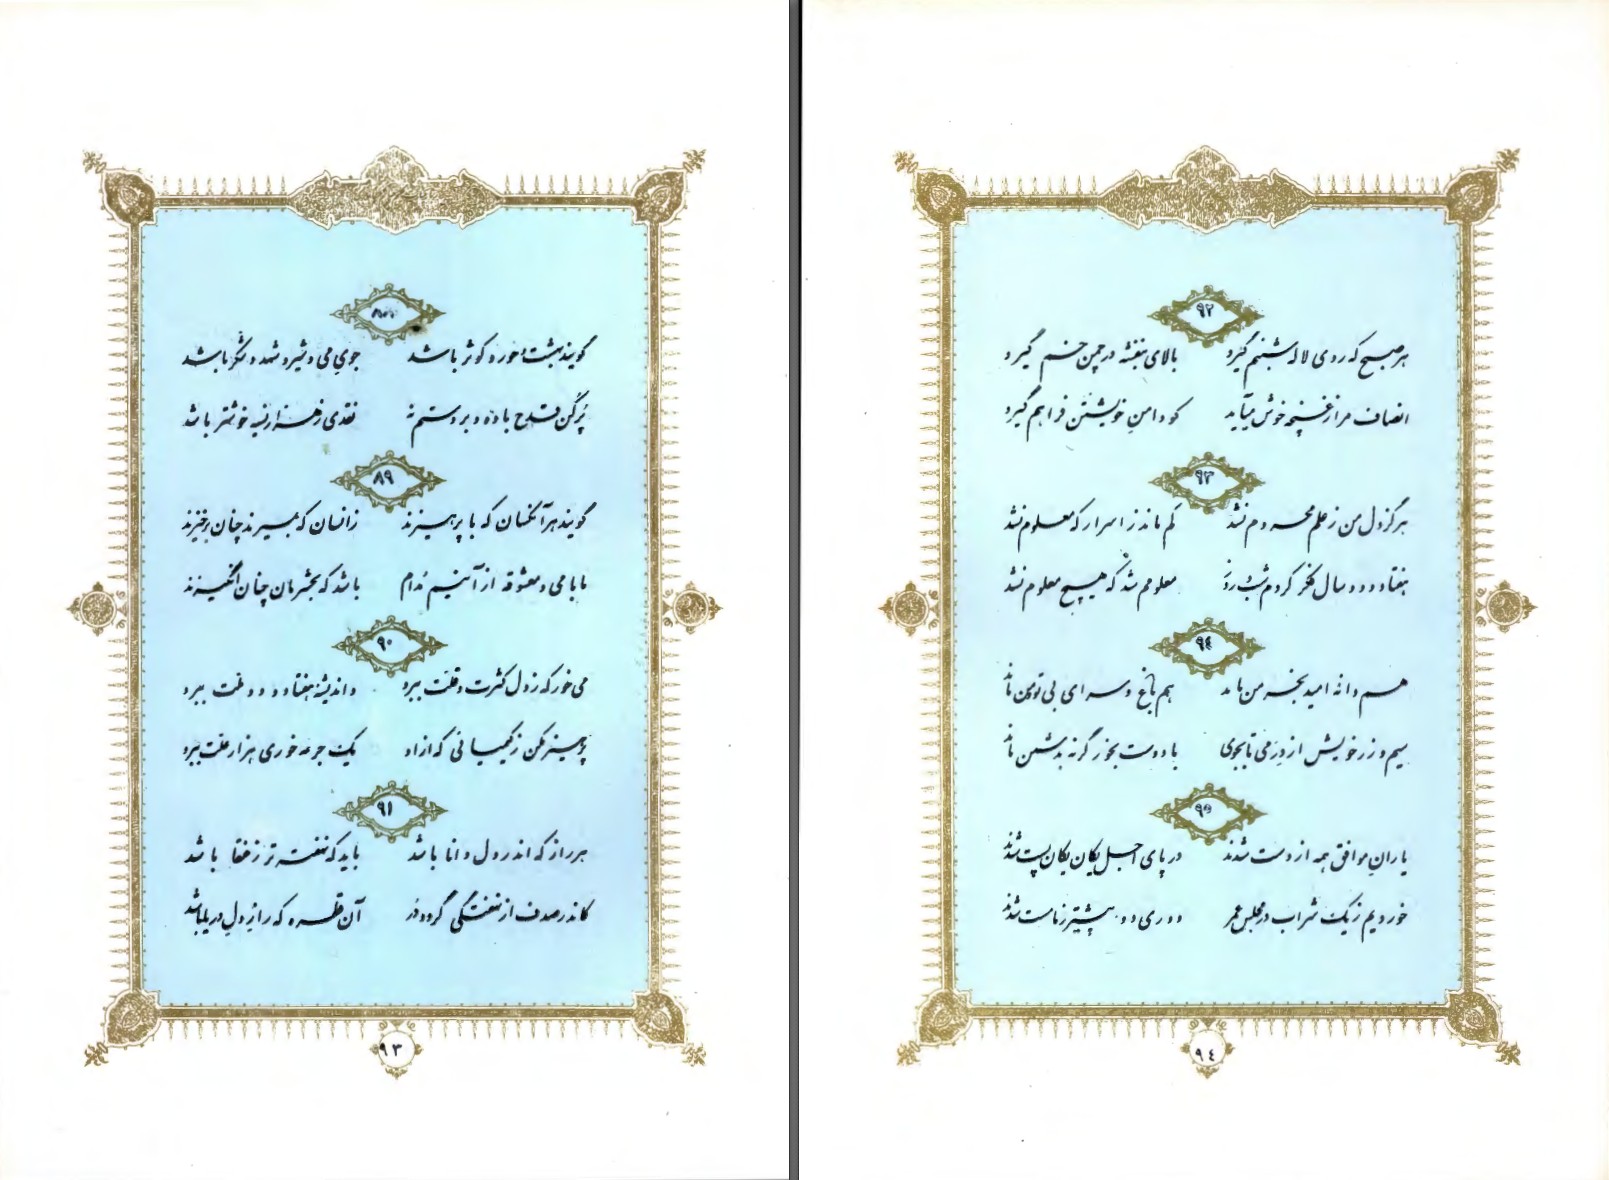 ۸۸
گویند بهشت و حور و کوثر باشد جوی می و شیر و شهد و شکر باشد
پر کن قدح باده و بر دستم نه نقدی ز هزار نسیه خوشتر باشد
۸۹
گویند هر آنکسان که با پرهیزند زانسان که بمیرند چنان برخیزند
ما با می و معشوقه از آنیم مدام باشد که بحشرمان چنان انگیزند
۹۰
می خور که ز دل کثرت و قلت ببرد و اندیشهٔ هفتاد و دو ملت ببرد
پرهیز مکن ز کیمیائی که از او یک جرعه خوری هزار علت ببرد
۹۱
هر راز که اندر دل دانا باشد باید که نهفته‌تر ز عنقا باشد
کاندر صدف از نهفتگی گردد در آن قطره که راز دل دریا باشد
۹۳
۹۲
هر صبح که روی لاله شبنم گیرد بالای بنفشه در چمن خم گیرد
انصاف مرا ز غنچه خوش می‌آید کو دامن خویشتن فراهم گیرد
۹۳
هرگز دل من ز علم محروم نشد کم ماند ز اسرار که معلوم نشد
هفتاد و دو سال فکر کردم شب و روز معلومم شد که هیچ معلوم نشد
۹٤
هم دانه امید بخرمن ماند هم باغ و سرای بی تو و من ماند
سیم و زر خویش از درمی تا بجوی با دوست بخور گرنه بدشمن ماند
۹۵
یاران موافق همه از دست شدند در پای اجل یکان یکان پست شدند
خوردیم ز یک شراب در مجلس عمر دوری دو پیشتر ز ما مست شدند
۹٤